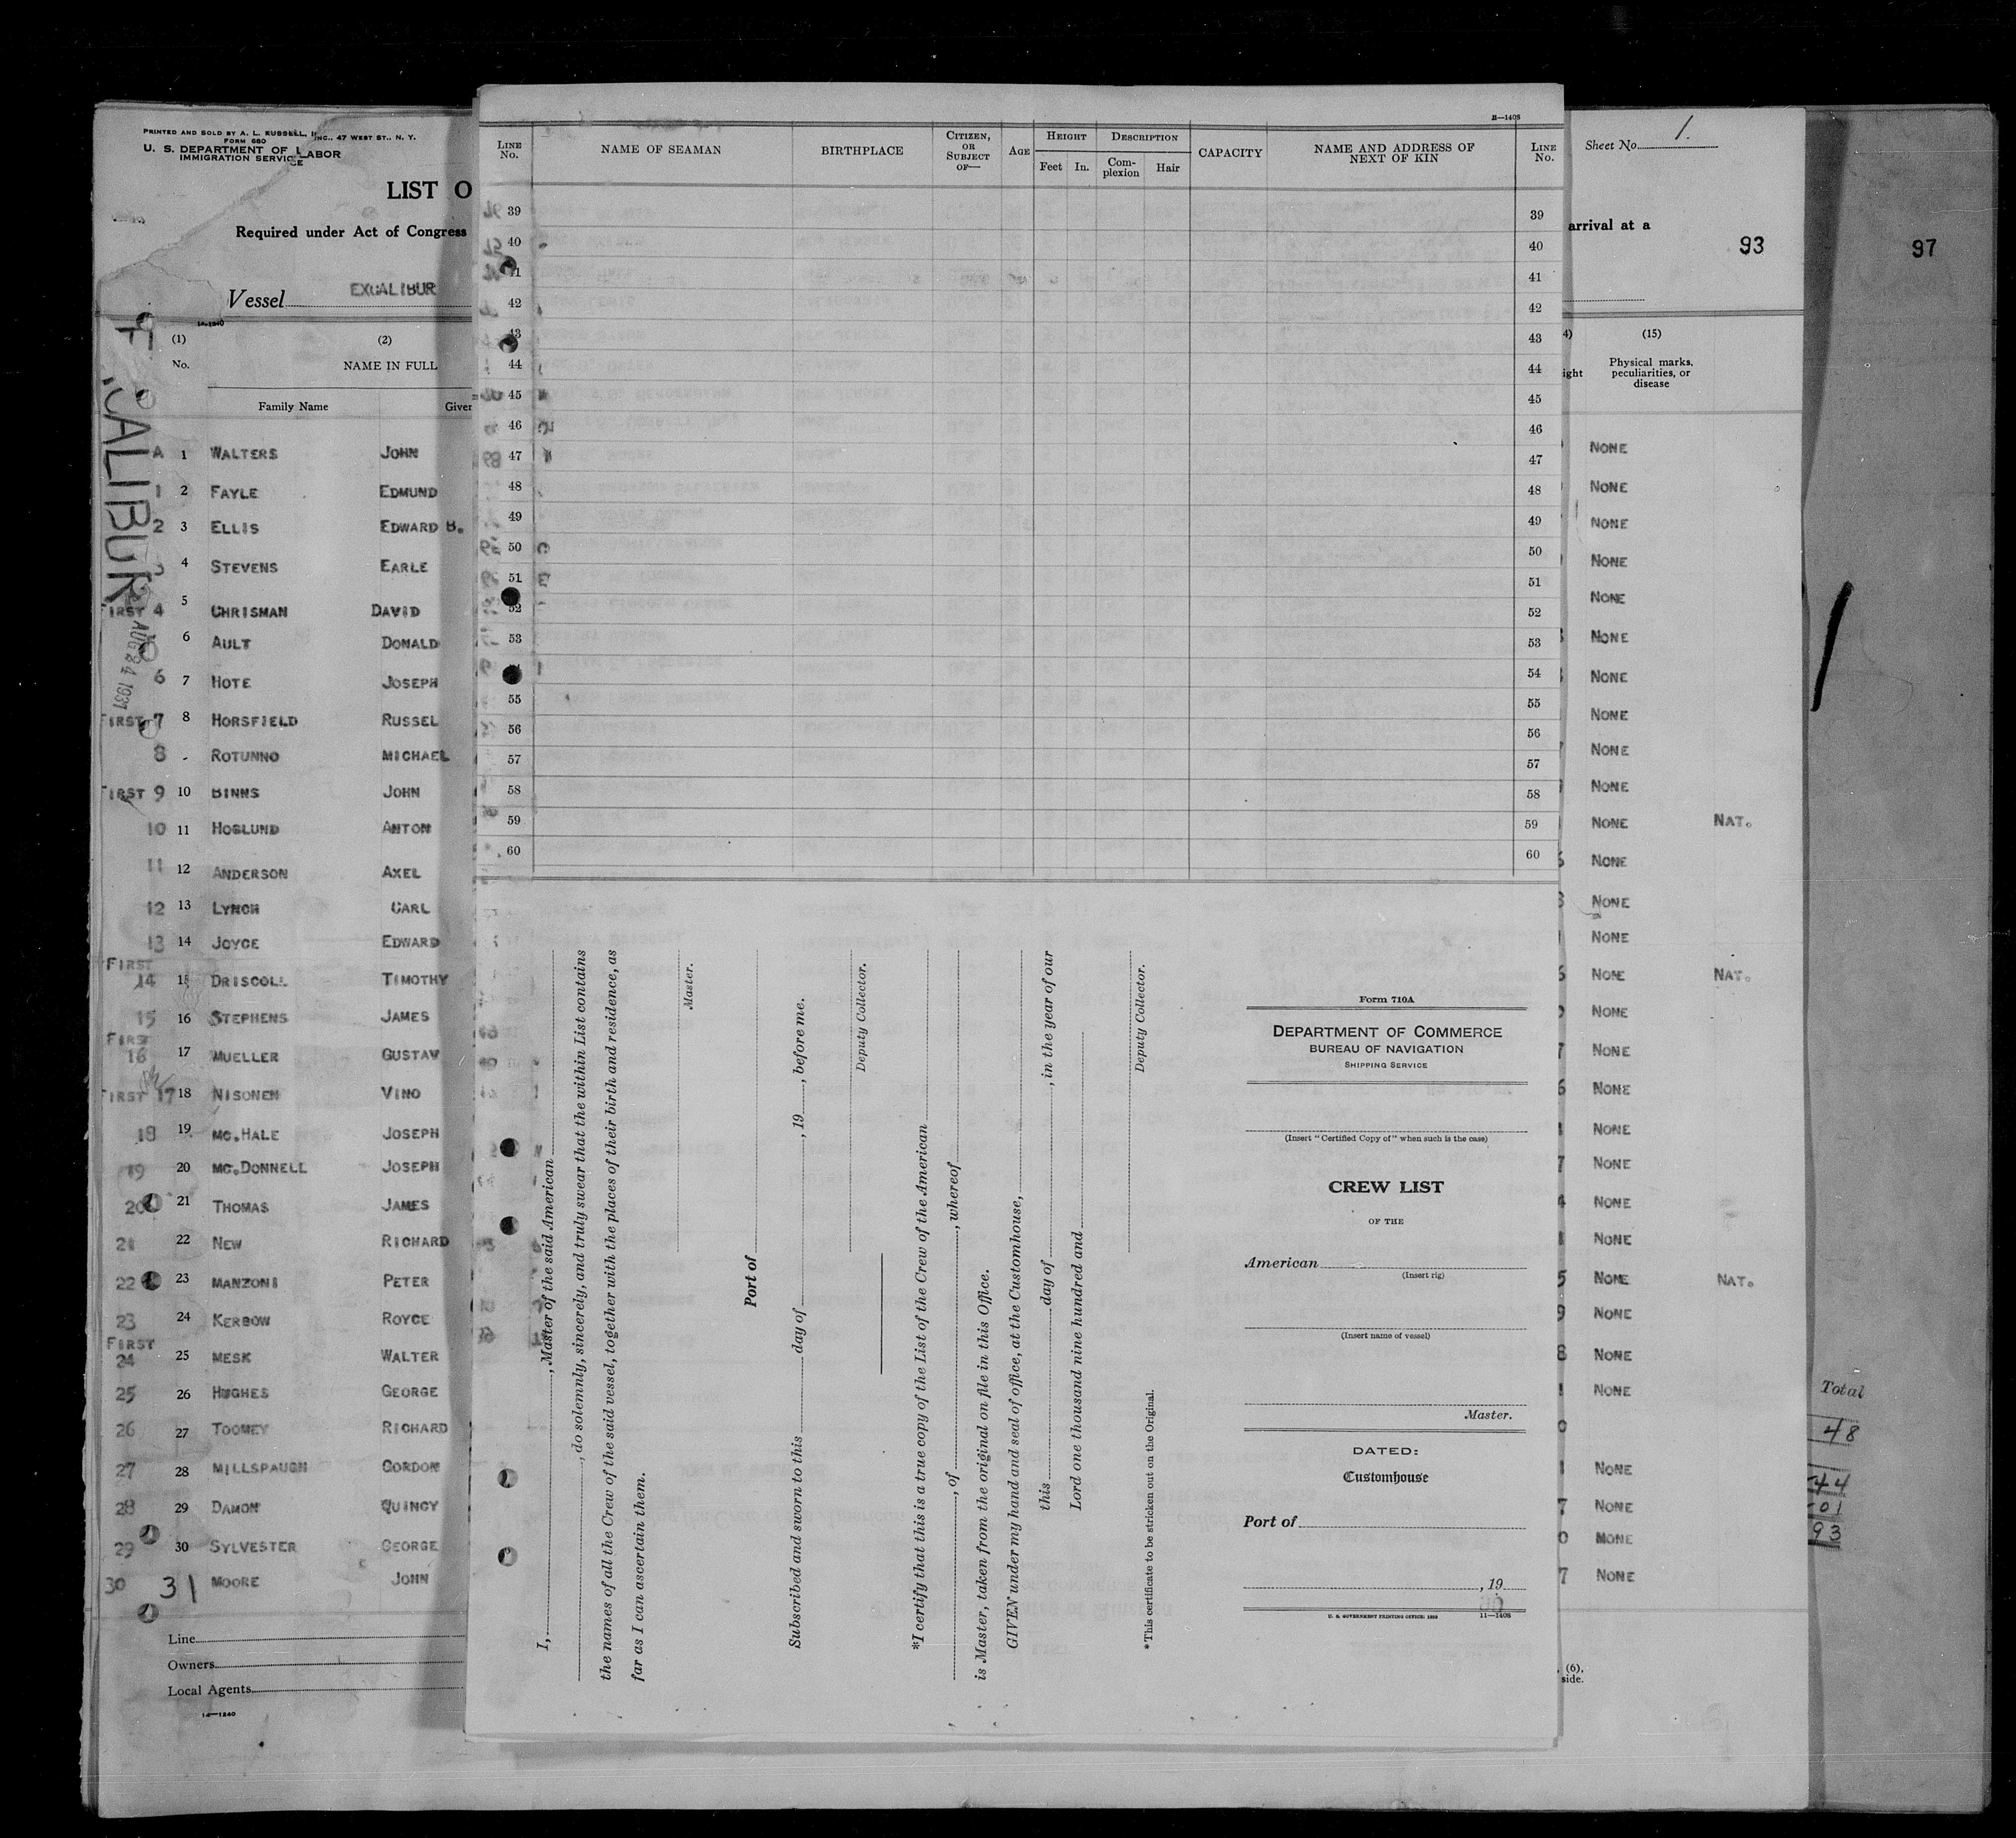 PRINTED AND SOLD BY A. L. RUSSELL, INC., 47 WEST ST., N. Y.
FORM 680
U. S. DEPARTMENT OF LABOR
IMMIGRATION SERVICE
LIST O
Required under Act of Congress
Vessel EXCALIBUR
14-1240
(1) (2)
No. NAME IN FULL
Family Name Given
CALIBUR
AUG 24 1937
A 1 WALTERS JOHN
1 2 FAYLE EDMUND
2 3 ELLIS EDWARD B.
3 4 STEVENS EARLE
FIRST 4 5 CHRISMAN DAVID
6 AULT DONALD
6 7 HOTE JOSEPH
FIRST 7 8 HORSFIELD RUSSEL
8 - ROTUNNO MICHAEL
FIRST 9 10 BINNS JOHN
10 11 HOGLUND ANTON
11 12 ANDERSON AXEL
12 13 LYNCH CARL
13 14 JOYCE EDWARD
FIRST
14 15 DRISCOLL TIMOTHY
15 16 STEPHENS JAMES
FIRST
16 17 MUELLER GUSTAV
FIRST 17 18 NISONEN VINO
18 19 MC.HALE JOSEPH
19 20 MC.DONNELL JOSEPH
20 21 THOMAS JAMES
21 22 NEW RICHARD
22 23 MANZONI PETER
23 24 KERBOW ROYCE
FIRST
24 25 MESK WALTER
25 26 HUGHES GEORGE
26 27 TOOMEY RICHARD
27 28 MILLSPAUGH GORDON
28 29 DAMON QUINCY
29 30 SYLVESTER GEORGE
30 31 MOORE JOHN
Line
Owners
Local Agents
14—1240
11—1408
LINE No. NAME OF SEAMAN BIRTHPLACE CITIZEN, OR SUBJECT OF— AGE HEIGHT Feet In. DESCRIPTION Complexion Hair CAPACITY NAME AND ADDRESS OF NEXT OF KIN LINE No.
39 39
40 40
41 41
42 42
43 43
44 44
45 45
46 46
47 47
48 48
49 49
50 50
51 51
52 52
53 53
54
55 55
56 56
57 57
58 58
59 59
60 60
I, , Master of the said American
, do solemnly, sincerely, and truly swear that the within List contains
the names of all the Crew of the said vessel, together with the places of their birth and residence, as
far as I can ascertain them.
Master.
Port of
Subscribed and sworn to this day of , 19 , before me.
Deputy Collector.
*I certify that this is a true copy of the List of the Crew of the American
, of , whereof
is Master, taken from the original on file in this Office.
GIVEN under my hand and seal of office, at the Customhouse,
this day of , in the year of our
Lord one thousand nine hundred and
Deputy Collector.
*This certificate to be stricken out on the Original.
Form 710A
DEPARTMENT OF COMMERCE
BUREAU OF NAVIGATION
SHIPPING SERVICE
(Insert "Certified Copy of" when such is the case)
CREW LIST
OF THE
American
(Insert rig)
(Insert name of vessel)
Master.
DATED:
Customhouse
Port of
, 19
U. S. GOVERNMENT PRINTING OFFICE: 11—1408
Sheet No. 1.
arrival at a
93
97
4) (15)
ight Physical marks, peculiarities, or disease
NONE
NONE
NONE
NONE
NONE
NONE
NONE
NONE
NONE
NONE
NONE NAT.
NONE
NONE
NONE
NONE NAT.
NONE
NONE
NONE
NONE
NONE
NONE
NONE
NONE NAT.
NONE
NONE
NONE
NONE
NONE
NONE
NONE
(6),
side.
Total
48
44
01
93